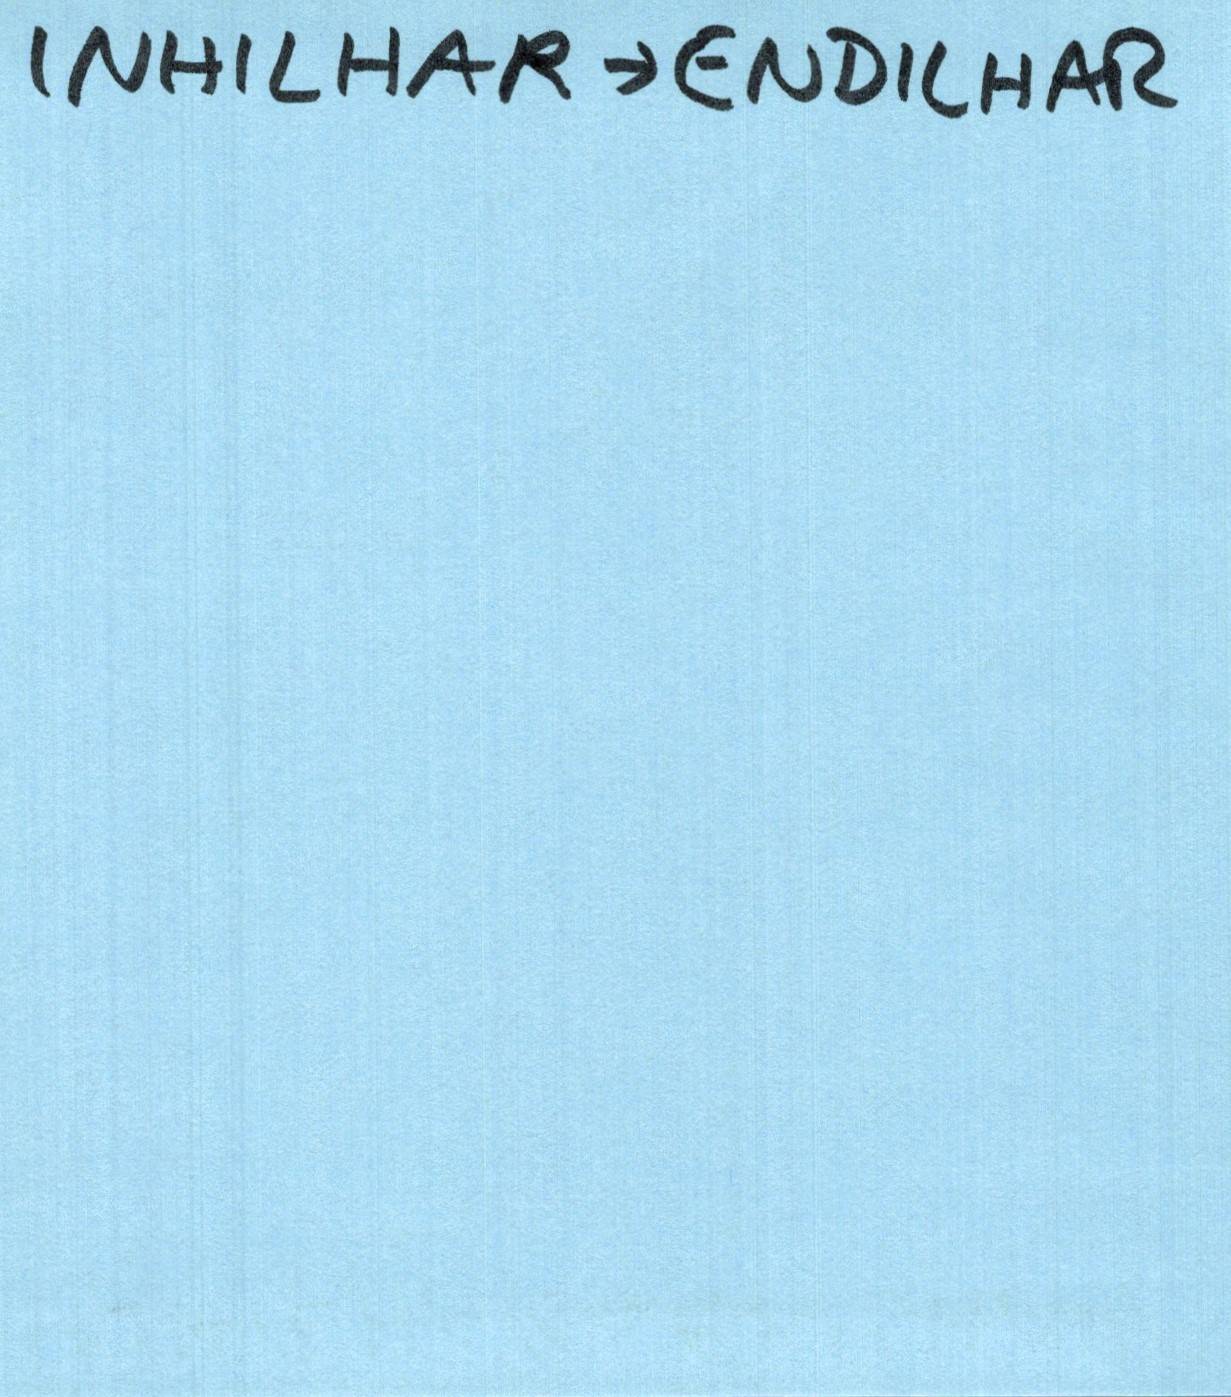 INHILHAR → ENDILHAR